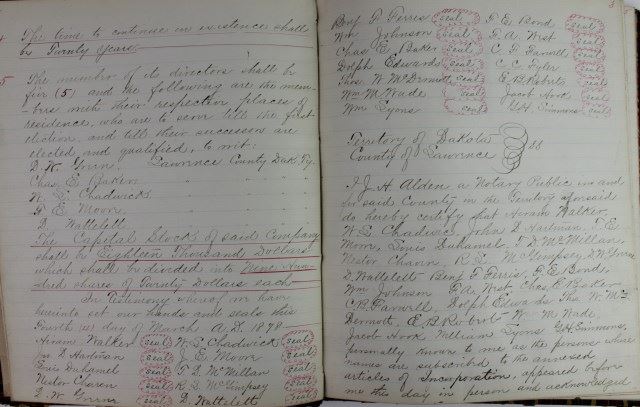 4 The time to continue in existence shall
be Twenty Years
5 The number of its directors shall be
five (5) and the following are the mem-
bers with their respective places of
residence, who are to serve till the first
election and till their successors are
elected and qualified, to wit:
D. W. Lawrence County Dak. Ty.
Chas. E. Baker " " "
W. S. Chadwick " " "
J. E. Moore " " "
D. Wattelett " " "
The Capital Stock of said Company
shall be Eighteen Thousand Dollars
which shall be divided into Nine Hun-
dred shares of Twenty Dollars each
In Testimony whereof we have
hereunto set our hands and seals this
Fourth day of March A.D. 1878
Hiram Walker seal W. S. Chadwick seal
Jno. D. Hartman seal J. E. Moore seal
Louis Duhamel seal T. D. McMillan seal
Nestor Charen seal R. S. McGimpsey seal
D. W. seal D. Wattelett seal
Benj. F. Ferris seal F. E. Bond seal
Wm Johnson seal F. A. West seal
Chas. E. Baker seal C. B. Farwell seal
Dolph Edwards seal C. C. Tyler seal
Thos. W. McDermott seal E. B. Robert seal
Wm M. Wade seal Jacob Hook seal
Wm Lyons seal G. H. Simmons seal
Territory of Dakota
County of Lawrence } SS
I J. H. Alden a Notary Public in and
for said County in the Territory aforesaid
do hereby certify that Hiram Walker
W. S. Chadwick, John D Hartman, J. E.
Moore, Louis Duhamel, T. D. McMillan,
Nestor Charen, R. S. McGimpsey, D. W.
D. Wattelett Benj F Ferris, F. E. Bond,
Wm Johnson F. A. West, Chas. E. Baker
C. B. Farwell, Dolph Edwards Thos. W. Mc-
Dermott, E. B. Robert W. M. Wade,
Jacob Hook William Lyons G. H. Simmons,
personally known to me as the persons whose
names are subscribed to the annexed
articles of Incorporation, appeared before
me this day in person and acknowledged